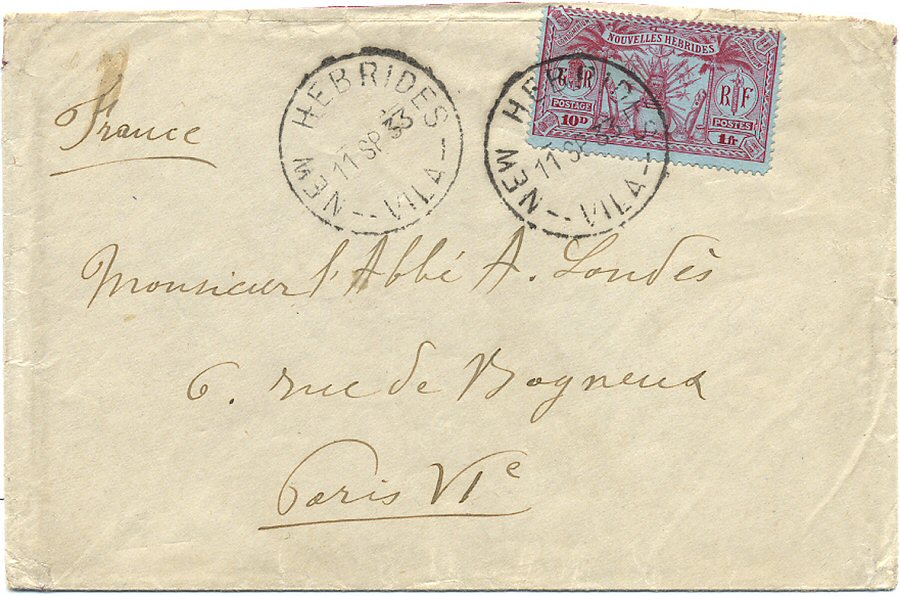 NOUVELLES HEBRIDES
G R
R F
POSTAGE
POSTES
10D
1fr
NEW HEBRIDES
11 SP 33
-- VILA --
NEW HEBRIDES
11 SP 33
-- VILA --
France
Monsieur l'Abbé A. Londès
6. rue de Bagneux
Paris VIe